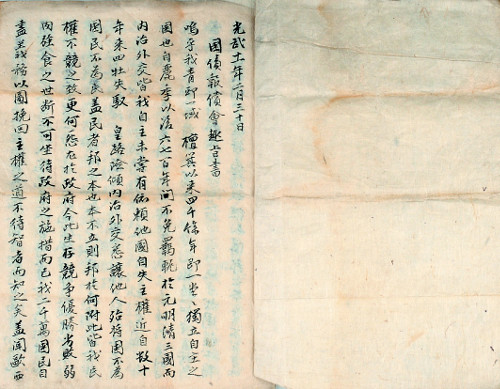 光武十一年二月三十日
國債報償會趣旨書
嗚乎我靑邱一域 檀箕以來四千餘年卽一堂〻獨立自主之
國也自麗季以洛六七百年間不免羈靮於元明淸三國而
內治外交皆我自主未嘗有依賴他國自失主權近自數十
年來四壯失馭 皇路險傾內治外交悉讓他人殆將國不爲
國民不爲民蓋民者邦之本也本不立則邦於何附此皆我民
權不競之致更何怨在於政府今此生存競爭優勝劣敗弱
肉强食之世斷不可坐待政府之施措而已我二千萬國民自
盡義務以圖挽回主權之道不待智者而知之矣蓋聞歐西